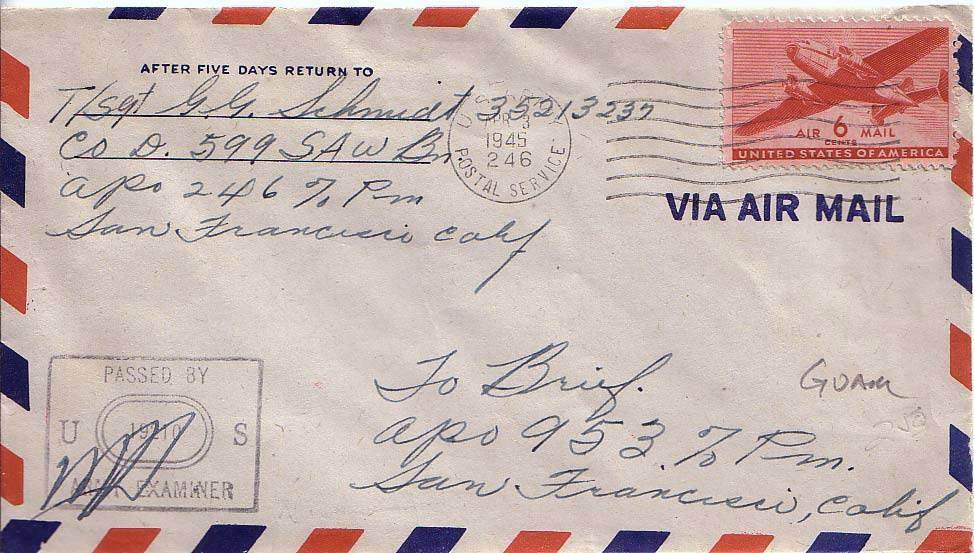 AFTER FIVE DAYS RETURN TO
T/Sgt G.G. Schmidt 35213237
Co D. 599 SAW Bn
apo 246 % Pm
San Francisco Calif
U.S.
APR 3
1945
246
POSTAL SERVICE
AIR 6 MAIL
CENTS
UNITED STATES OF AMERICA
VIA AIR MAIL
PASSED BY
U S
ARMY EXAMINER
To Brief.
apo 953 % Pm.
San Francisco, Calif
GUAM